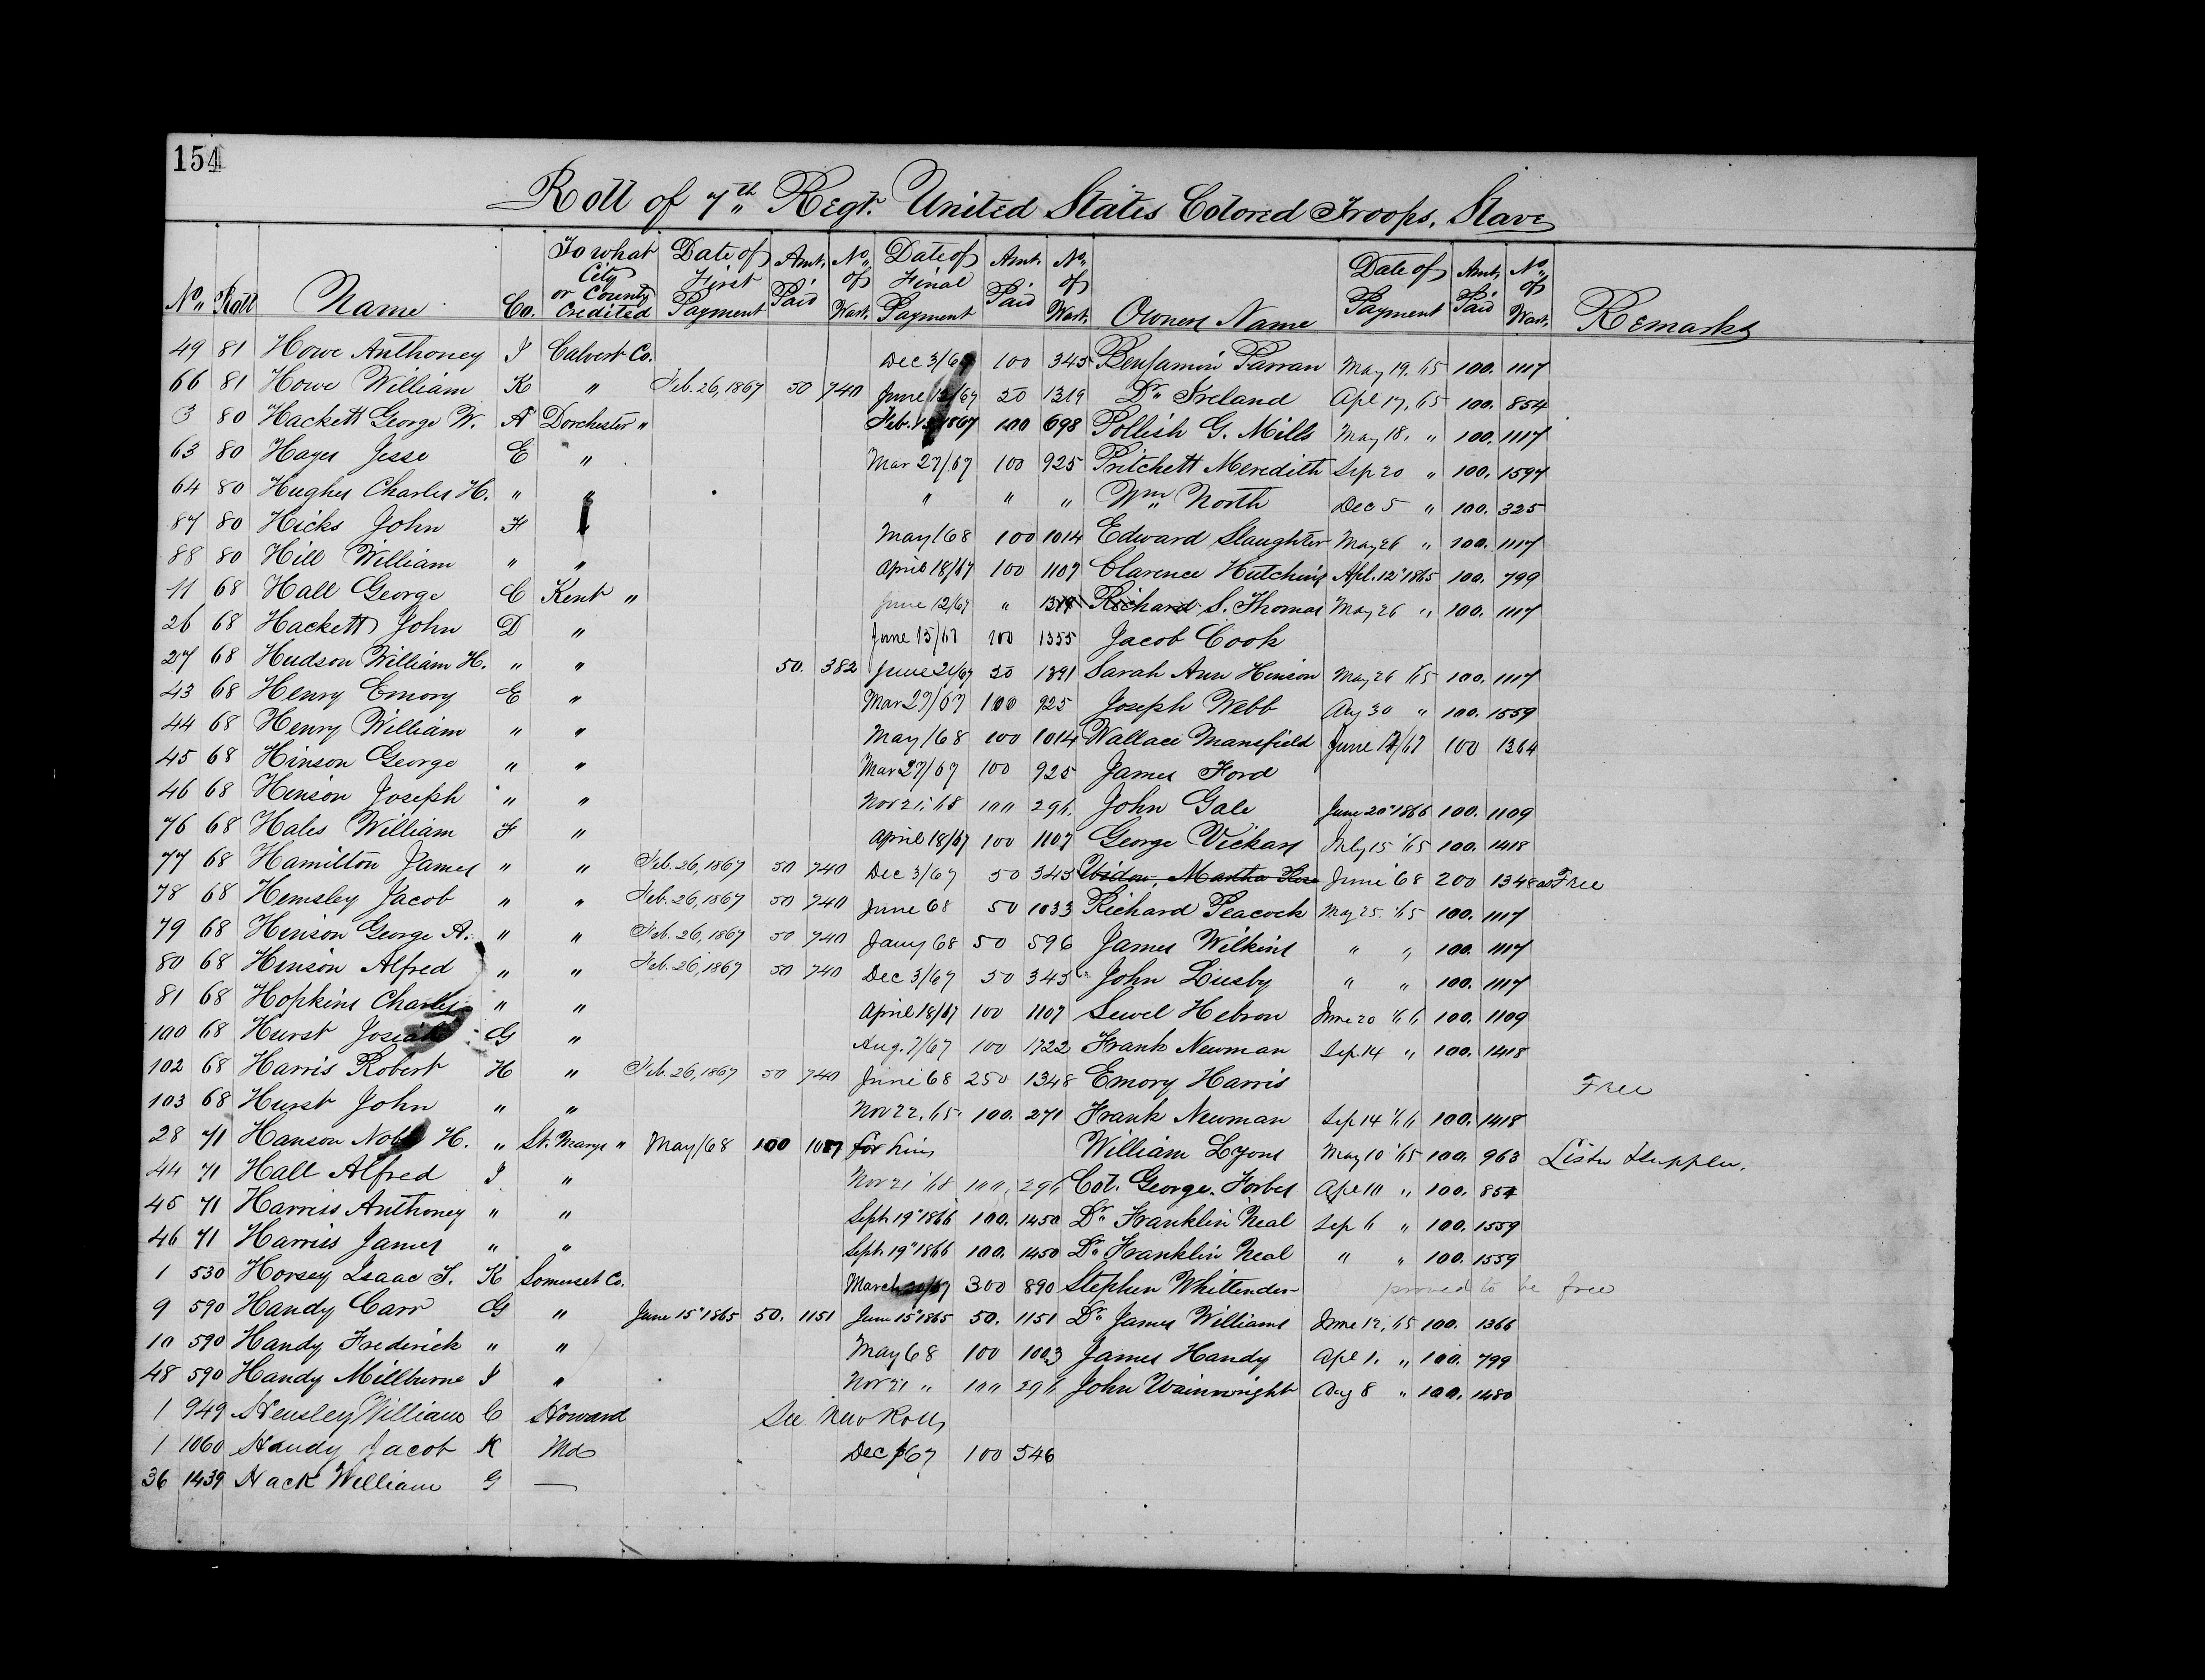 154
Roll of 7th Regt. United States Colored Troops, Slave
No. Roll Name Co. To what City or County Credited Date of First Payment Amt. Paid No. of Wart. Date of Final Payment Amt. Paid No. of Wart. Owners Name Date of Payment Amt. Paid No. of Wart. Remarks
49 81 Howe Anthoney I Calvert Co. Dec 3/67 100 345 Benjamin Parran May 19. '65 100. 1117
66 81 Howe William K " Feb. 26, 1867 50 740 June 12/67 50 1319 Dr. Ireland Apl 17. '65 100. 854
3 80 Hackett George W. A Dorchester " Feb. 1867 100 698 Pollish G. Mills May 18. " 100. 1117
63 80 Hayes Jesse E " Mar 27/67 100 925 Pritchett Meredith Sep 20 " 100. 1597
64 80 Hughes Charles H. " " " " " Wm. North Dec 5 " 100. 325
87 80 Hicks John F " May/68 100 1014 Edward Slaughter May 26 " 100. 1117
88 80 Hill William " " April 18/67 100 1107 Clarence Hutchins Apl. 12" 1865 100. 799
11 68 Hall George C Kent " June 12/67 " 1319 Richard S. Thomas May 26 " 100. 1117
26 68 Hackett John D " June 15/67 100 1355 Jacob Cook
27 68 Hudson William H. " " 50. 382 June 21/67 50 1391 Sarah Ann Hinson May 26 '65 100. 1117
43 68 Henry Emory E " Mar 27/67 100 925 Joseph Webb Aug 30 " 100. 1559
44 68 Henry William " " May/68 100 1014 Wallace Mansfield June 17/67 100 1364
45 68 Hinson George " " Mar 27/67 100 925 James Ford
46 68 Hinson Joseph " " Nov 21, '68 100 296. John Gale June 20" 1866 100. 1109
76 68 Hales William F " April 18/67 100 1107 George Vickars July 15 '65 100. 1418
77 68 Hamilton James " " Feb. 26, 1867 50 740 Dec 3/67 50 345 Widow, Martha June '68 200 1348 as Free
78 68 Hemsley Jacob " " Feb. 26, 1867 50 740 June 68 50 1033 Richard Peacock May 25. '65 100. 1117
79 68 Hinson George A. " " Feb. 26, 1867 50 740 Jany 68 50 596 James Wilkins " " 100. 1117
80 68 Hinson Alfred " " Feb. 26, 1867 50 740 Dec 3/67 50 345 John Lusby " " 100. 1117
81 68 Hopkins Charles " " April 18/67 100 1107 Sewel Hebron June 20 '66 100. 1109
100 68 Hurst Josiah G " Aug. 7/67 100 1722 Frank Newman Sep. 14 " 100. 1418
102 68 Harris Robert H " Feb. 26, 1867 50 740 June '68 250 1348 Emory Harris Free
103 68 Hurst John " " Nov 22, '65. 100. 271 Frank Newman Sep 14 '66 100. 1418
28 71 Hanson H. " St. Marys " May/68 100 1017 for him William Lyons May 10 '65 100. 963
44 71 Hall Alfred I " Nov 21 '68 100. 296 Col. George. Forbes Apl 10 " 100. 854
45 71 Harriss Anthoney " " Sept. 19" 1866 100. 1450 Dr. Franklin Neal Sep 6 " 100. 1559
46 71 Harriss James " " Sept. 19" 1866 100. 1450 Dr. Franklin Neal " " 100. 1559
1 530 Horsey Isaac J. K Somerset Co. March 20/67 300 890 Stephen Whittender proved to be free
9 590 Handy Carr G " June 15" 1865 50. 1151 June 15" 1865 50. 1151 Dr. James Williams June 12, '65 100. 1366
10 590 Handy Frederick " " May 68 100 1003 James Handy Apl 1. " 100. 799
48 590 Handy Millburne I " Nov 21 " 100 296 John Wainwright Aug 8 " 100. 1480
1 949 Hensley William C Howard See New Rolls
1 1060 Handy Jacob K Md Dec /67 100 546
36 1439 Hack William G —